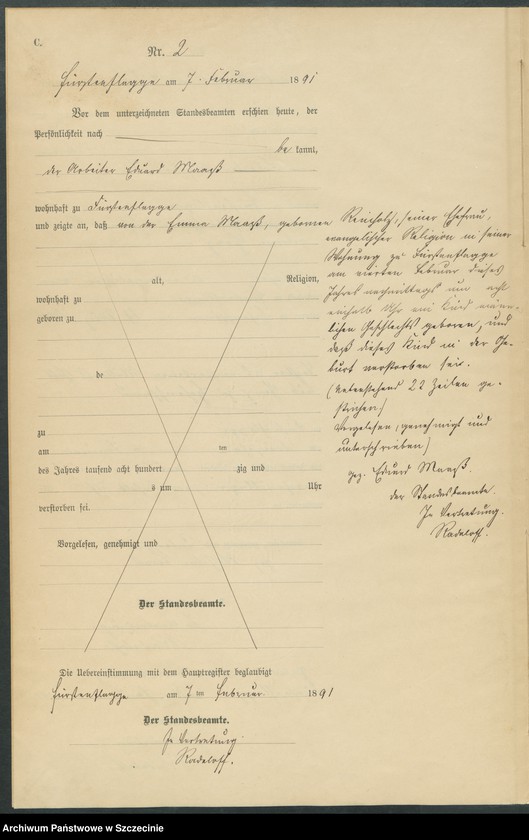 C.
Nr. 2
Fürstenflagge am 7. Februar 1891
Vor dem unterzeichneten Standesbeamten erschien heute, der
Persönlichkeit nach
be kannt,
der Arbeiter Eduard Maaß
wohnhaft zu Fürstenflagge
und zeigte an, daß von der Emma Maaß, geborenen Reinholz, seiner Ehefrau,
evangelischer Religion in seiner
Wohnung zu Fürstenflagge
am vierten Februar dieses
Jahres nachmittags um acht
einhalb Uhr ein Kind männ-
lichen Geschlechts geboren, und
daß dieses Kind in der Ge-
burt verstorben sei.
(Untenstehend 22 Zeilen ge-
strichen)
Vorgelesen, genehmigt und
unterschrieben)
gez. Eduard Maaß
der Standesbeamte.
In Vertretung.
Radeloff.
alt, Religion,
wohnhaft zu
geboren zu
de
zu
am ten
des Jahres tausend acht hundert zig und
s um Uhr
verstorben sei.
Vorgelesen, genehmigt und
Der Standesbeamte.
Die Uebereinstimmung mit dem Hauptregister beglaubigt
Fürstenflagge am 7 ten Februar 1891
Der Standesbeamte.
In Vertretung.
Radeloff.
Archiwum Państwowe w Szczecinie